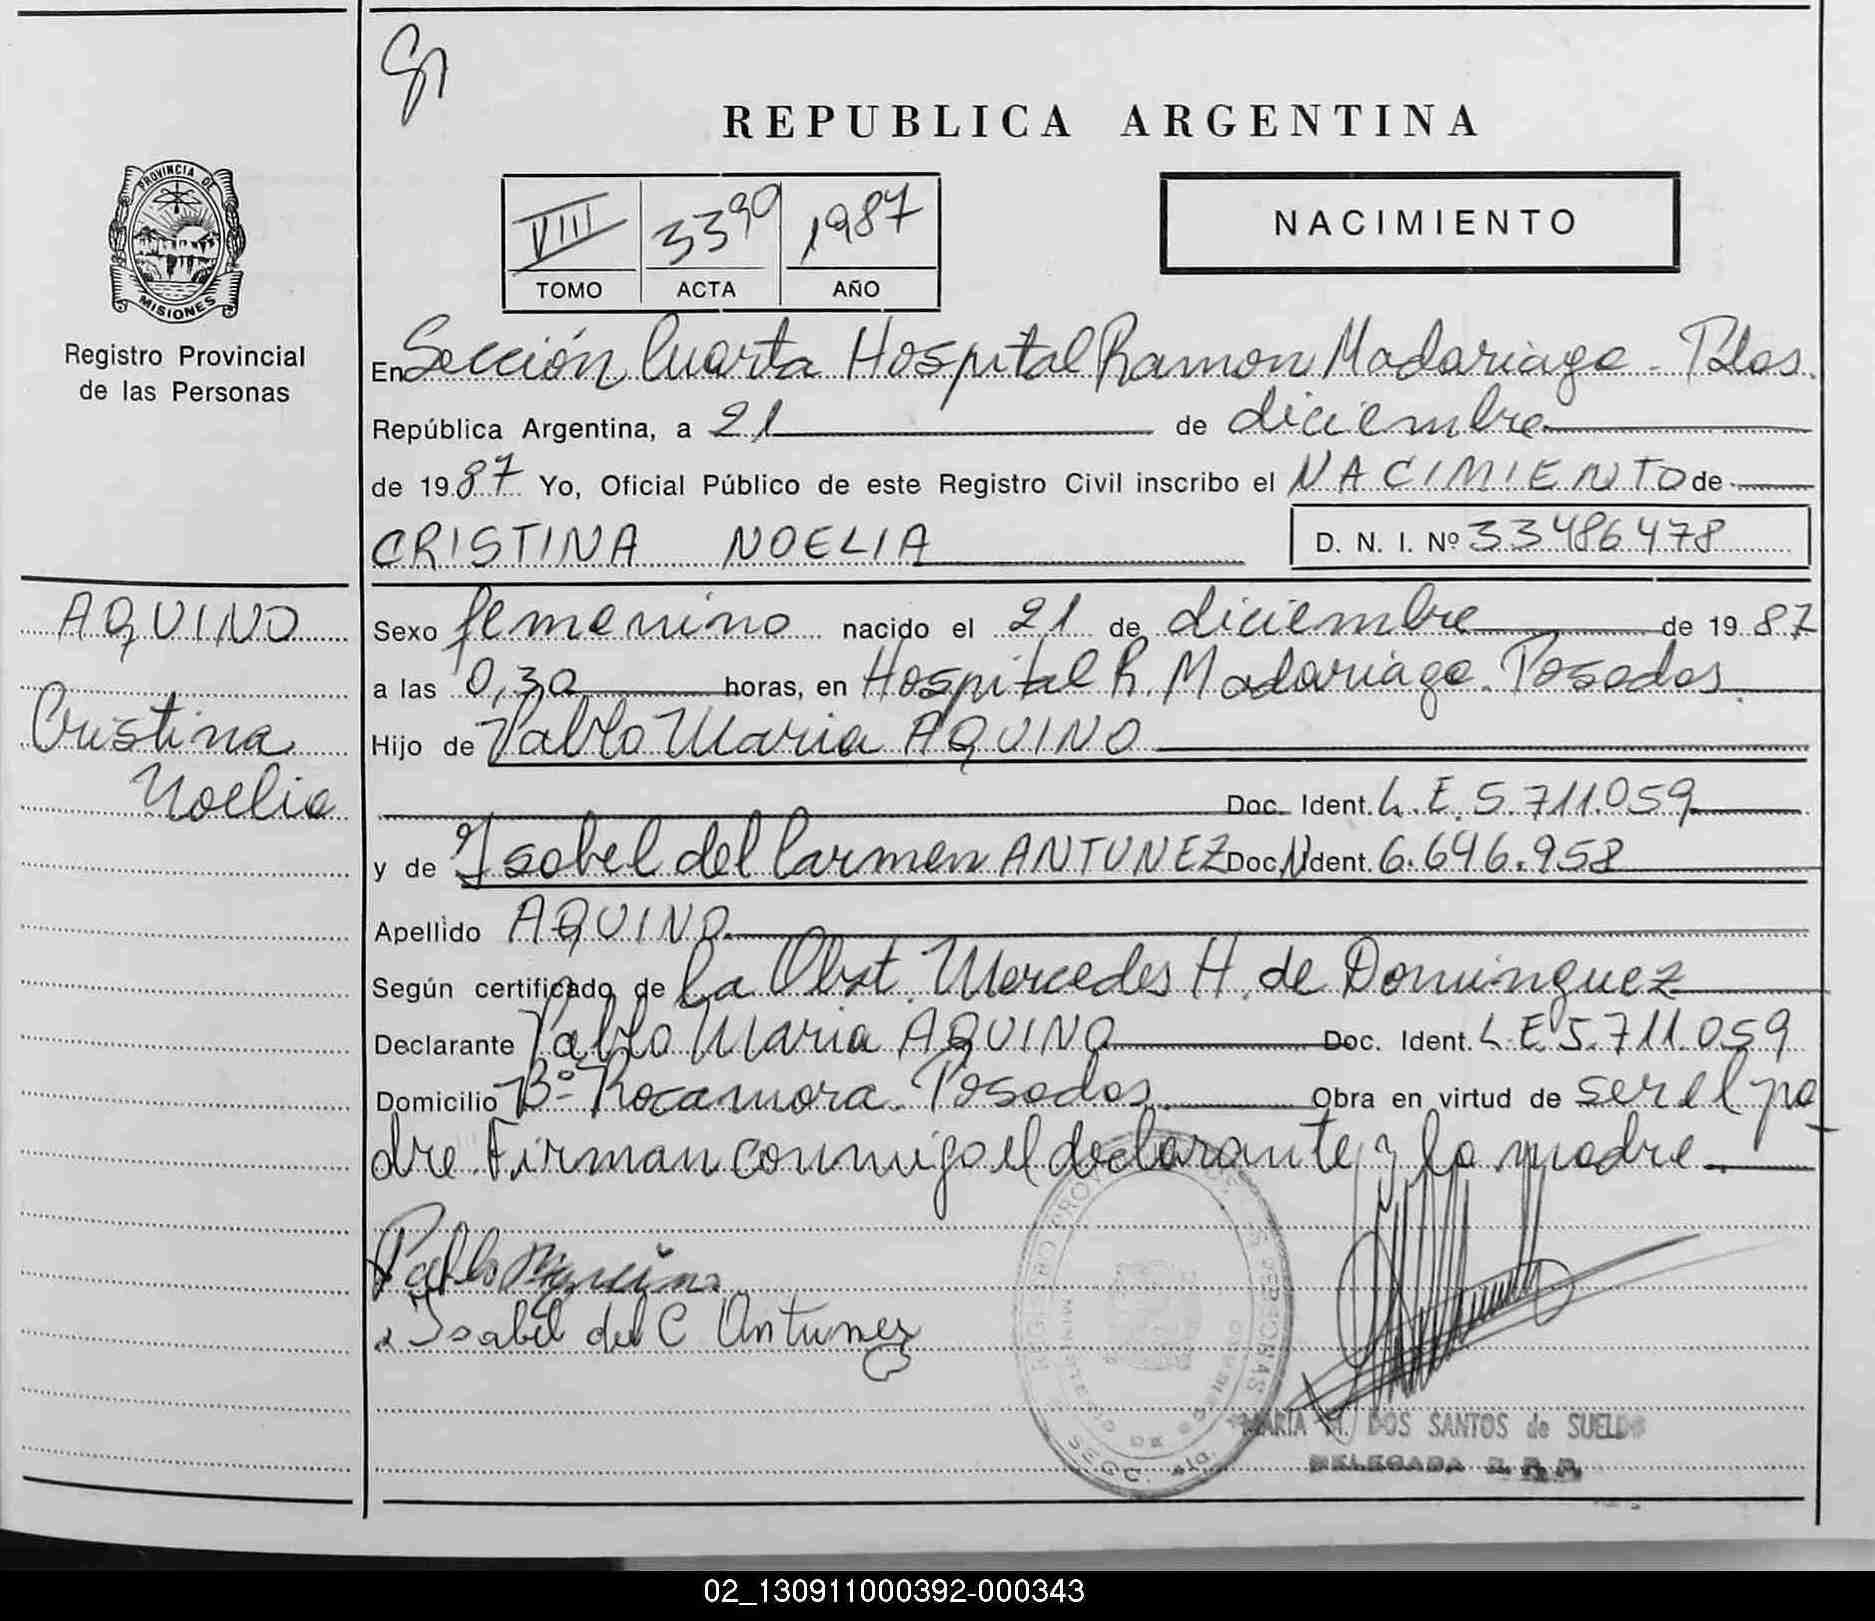 REPUBLICA ARGENTINA
PROVINCIA DE
MISIONES
Registro Provincial
de las Personas
VIII 3390 1987
TOMO ACTA AÑO
NACIMIENTO
En Sección Cuarta Hospital Ramon Madariaga - Pdas.
República Argentina, a 21 de diciembre
de 1987 Yo, Oficial Público de este Registro Civil inscribo el NACIMIENTO de
CRISTINA NOELIA D. N. I. Nº 33486478
AQUINO
Cristina
Noelia
Sexo femenino nacido el 21 de diciembre de 1987
a las 0,30 horas, en Hospital R. Madariaga. Posadas.
Hijo de Pablo Maria AQUINO
Doc. Ident. L.E. 5.711.059
y de Isabel del Carmen ANTUNEZ Doc. Ident. 6.646.958
Apellido AQUINO
Según certificado de la Obst. Mercedes H. de Dominguez
Declarante Pablo Maria AQUINO Doc. Ident. L.E 5.711.059
Domicilio Bº Rocamora. Posadas. Obra en virtud de ser el pa
dre. Firman conmigo el declarante y la madre.
Pablo Aquino
Isabel del C Antunez
REGISTRO PROVINCIAL DE LAS PERSONAS
MINISTERIO DE GOBIERNO
SECC. 4ta.
MARIA M. DOS SANTOS de SUELDO
DELEGADA R. P. P.
02_130911000392-000343